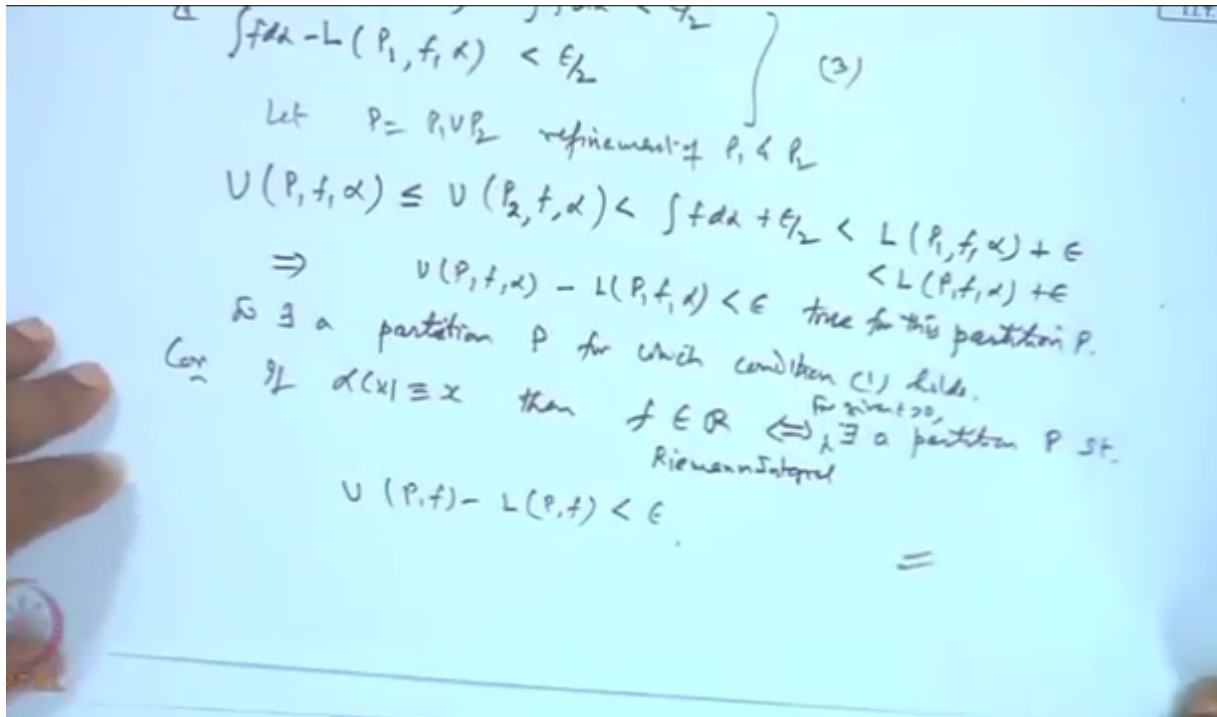 I.I.T.
∫fdα < ε/2
& ∫fdα - L(P₁, f, α) < ε/2 (3)
Let P = P₁∪P₂ refinement of P₁ & P₂
U(P, f, α) ≤ U(P₂, f, α) < ∫fdα + ε/2 < L(P₁, f, α) + ε
< L(P, f, α) + ε
⇒ U(P, f, α) - L(P, f, α) < ε true for this partition P.
So ∃ a partition P for which condition (1) holds.
Cor If α(x) ≡ x then f ∈ R ⇔ For given ε>0, ∃ a partition P st.
Riemann Integral
U(P, f) - L(P, f) < ε.
=